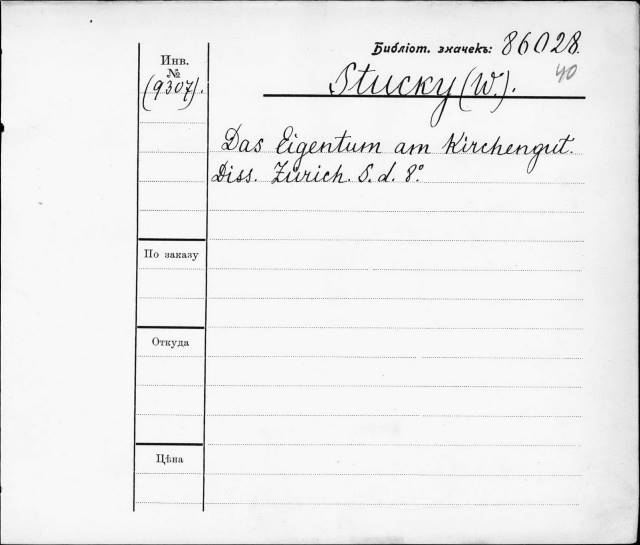 Библіот. значекъ: 86028.
40
Инв.
№
(9307).
Stucky (W.).
Das Eigentum am Kirchengut.
Diss. Zürich. S. d. 8°
По заказу
Откуда
Цѣна